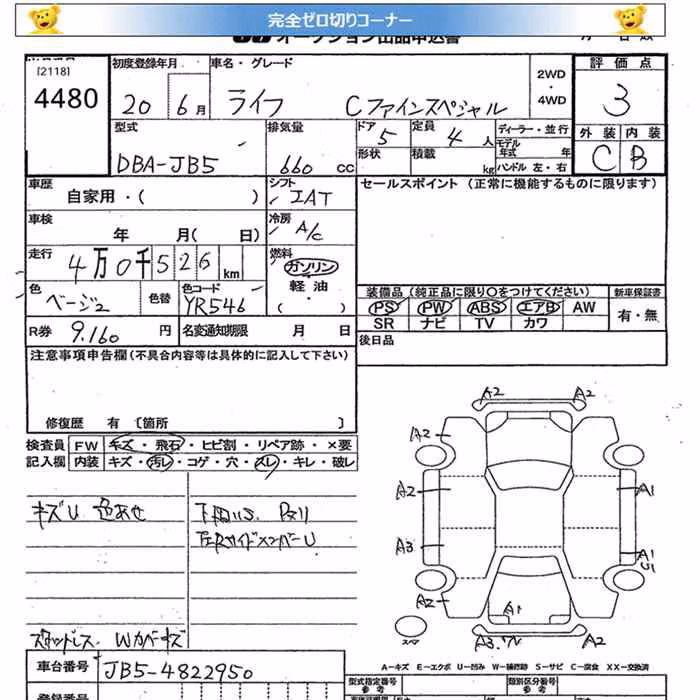 完全ゼロ切りコーナー
オークション出品申込書
[2118]
4480
初度登録年月
20 6月
車名・グレード
ライフ Cファインスペシャル
2WD
・
4WD
評価点
3
外装 内装
C B
型式
DBA-JB5
排気量
660 CC
ドア
5
定員
4 人
形状
積載
kg
ディーラー・並行
モデル年式 年
ハンドル 左・右
車歴
自家用・( )
シフト
IAT
セールスポイント (正常に機能するものに限ります)
車検
年 月( 日)
冷房
A/C
走行
4万0千526km
燃料
ガソリン
軽油
・
( )
色
ベージュ
色替
色コード
YR546
装備品(純正品に限り○をつけてください)
PS PW ABS エアB AW
SR ナビ TV カワ
新車保証書
有・無
R券
9,160 円
名変通知期限 月 日
後日品
注意事項申告欄(不具合内容等は具体的に記入して下さい)
修復歴 有 [箇所 ]
検査員記入欄
FW キズ・飛石・ヒビ割・リペア跡・×要
内装 キズ・汚レ・コゲ・穴・スレ・キレ・破レ
キズU 色あせ
下回りS Pスリ
左Rサイドメンバー U
スタットレス Wカバーキズ
A2 A2
A2
A2 A1
A3 A1
U1
A2
A1
A3.W A2
スペア
A-キズ E-エクボ U-凹み W-補修跡 S-サビ C-腐食 XX-交換済
車台番号
JB5-4822950
登録番号
型式指定番号
参考
類別区分番号
参考